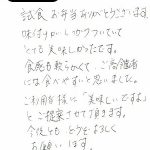 試食お弁当ありがとうございます。
味付けがしっかりついていて
とても美味しかったです。
食感も軟らかくて、ご高齢者
にも食べやすいと思いました。
ご利用者様に「美味しいですよ」
とご提案させて頂きます。
今後とも どうぞよろしく
お願いします。